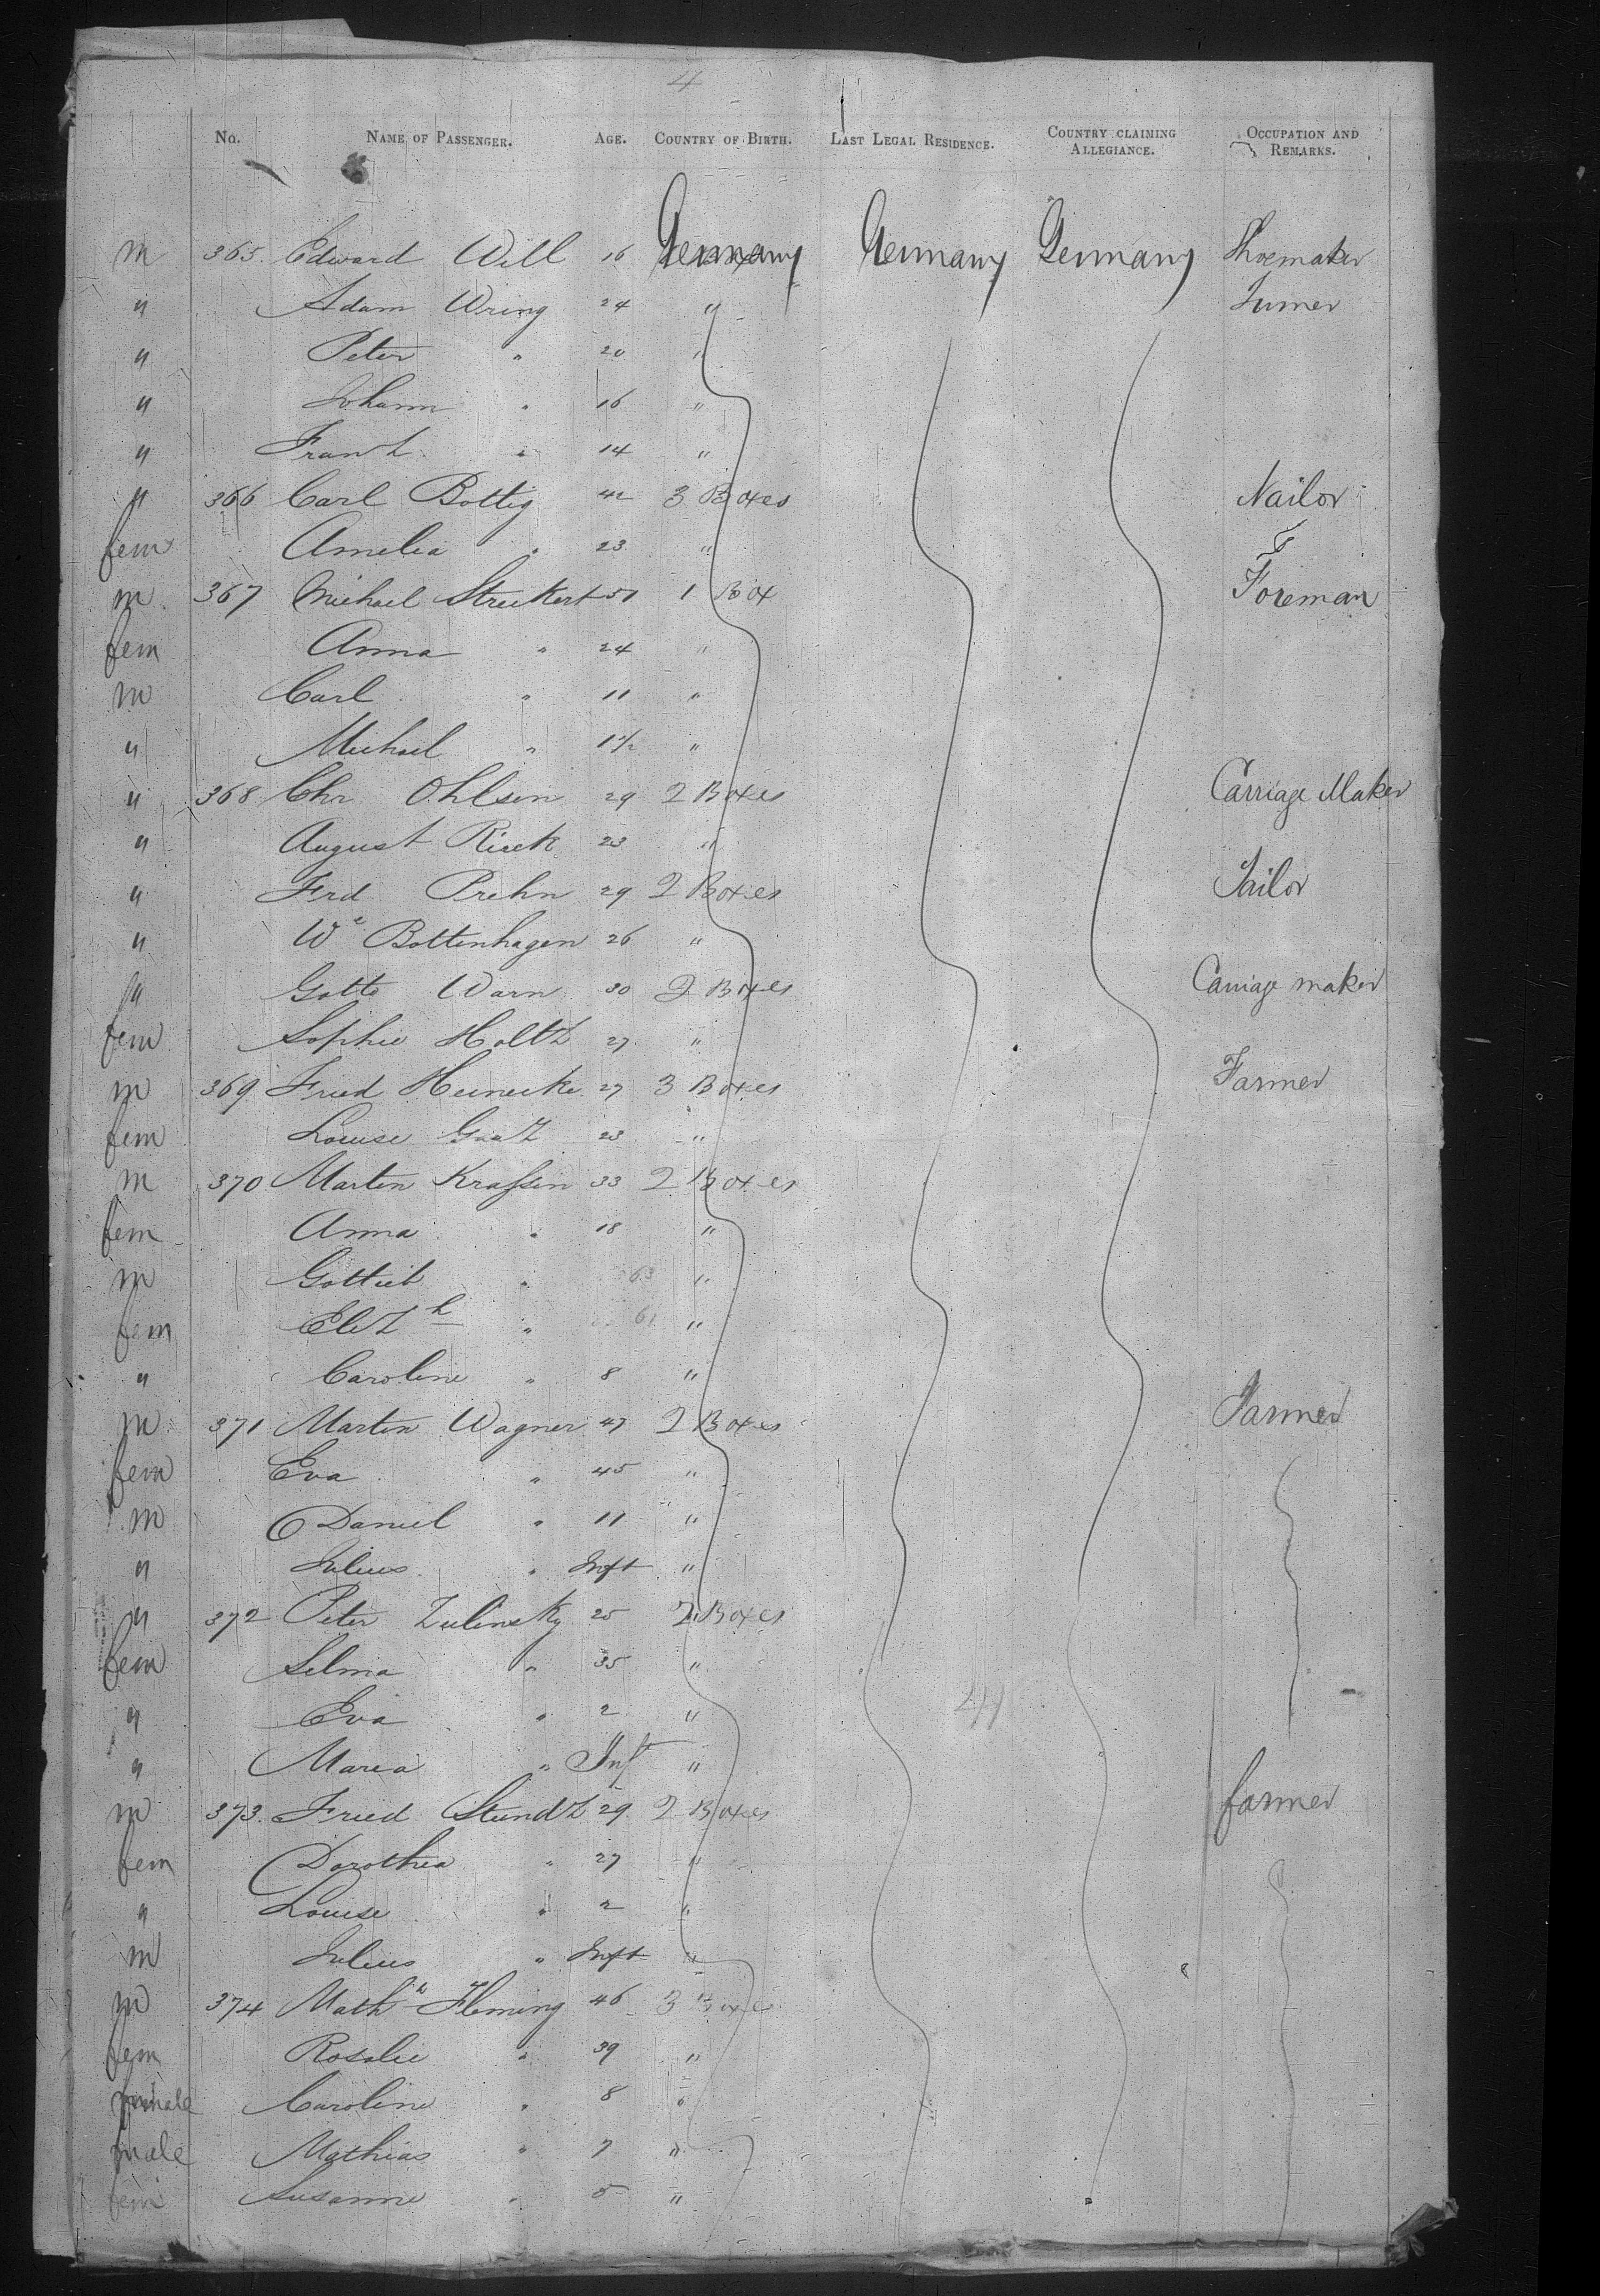 4
No. NAME OF PASSENGER. AGE. COUNTRY OF BIRTH. LAST LEGAL RESIDENCE. COUNTRY CLAIMING ALLEGIANCE. OCCUPATION AND REMARKS.
m 365. Edward Will 16 Germany Germany Germany Shoemaker
" Adam Wring 24 " Turner
" Peter " 20 "
" Johann " 16 "
" Frank " 14 "
" 366 Carl Bottig 42 3 Boxes Nailor
fem Amelia " 23 "
m 367 Michael Streckert 51 1 Box Foreman
fem Anna " 24 "
m Carl " 11 "
" Michael " 1½ "
" 368 Chr Ohlsen 29 2 Boxes Carriage Maker
" August Rieck 23 "
" Frd Prehn 29 2 Boxes Tailor
" Wm Bottenhagen 26 "
" Gotte Warn 30 2 Boxes Carriage maker
fem Sophie Holtz 27 "
m 369 Fried Heinecke 27 3 Boxes Farmer
fem Louise 23 "
m 370 Martin Krassin 33 2 Boxes
fem Anna " 18 "
m Gottlieb " 63 "
fem Eliz h " 61 "
" Caroline " 8 "
m 371 Martin Wagner 47 2 Boxes Farmer
fem Eva " 45 "
m Daniel " 11 "
" Julius " Inft "
" 372 Peter Zulinsky 25 2 Boxes
fem Selma " 35 "
" Eva " 2 "
" Maria " Inft "
m 373. Fried Stundz 29. 2 Boxes farmer
fem Dorothea " 27 "
" Louise " 2 "
m Julius " Inft "
m 374 Math s Fleming 46 3 Boxes
fem Rosalie " 39 "
female Caroline " 8 "
male Mathias " 7 "
fem Susanne " 5 "